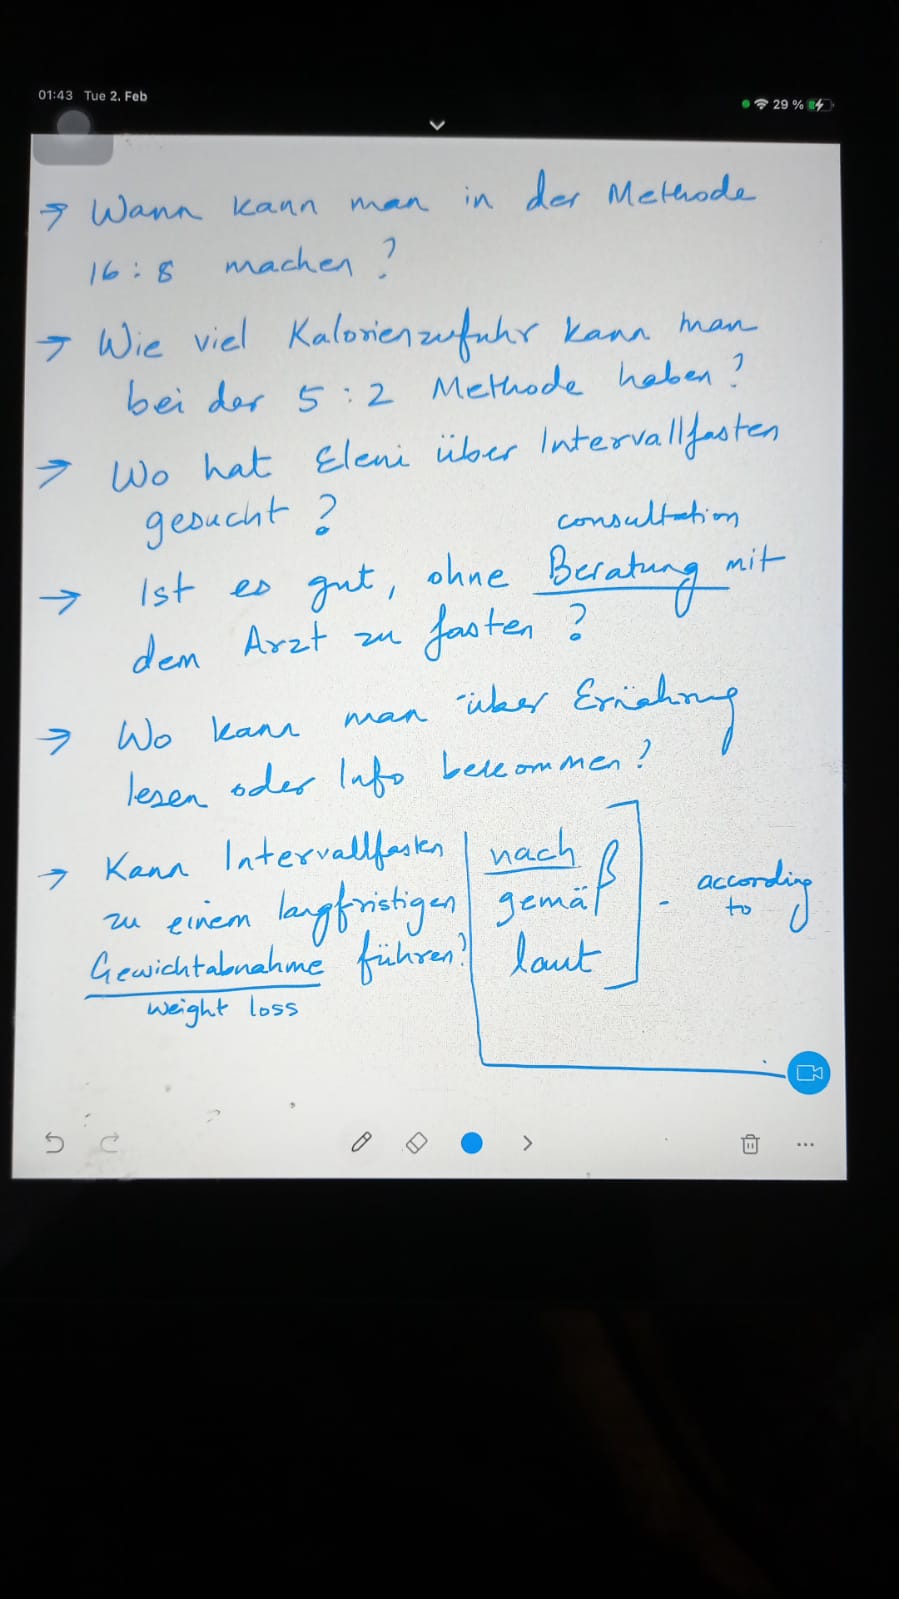 01:43 Tue 2. Feb
29 %
→ Wann kann man in der Methode
16:8 machen?
→ Wie viel Kalorienzufuhr kann man
bei der 5:2 Methode haben?
→ Wo hat Eleni über Intervallfasten
gesucht?
consultation
→ Ist es gut, ohne Beratung mit
dem Arzt zu fasten?
→ Wo kann man über Ernährung
lesen oder Info bekommen?
→ Kann Intervallfasten
zu einem langfristigen
Gewichtabnahme führen?
weight loss
nach
gemäß
laut
- according
to